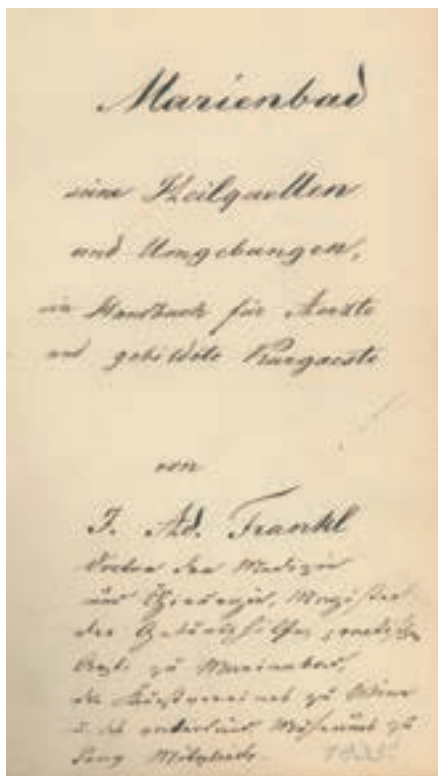 Marienbad
seine Heilquellen
und Umgebungen,
ein Handbuch für Aerzte
und gebildete Kurgaeste
von
J. Ad. Frankl
Doctor der Medizin
und Chirurgie, Magister
der Geburtshilfe, pract.
Arzt zu Marienbad,
des Kunstvereines zu Wien
u. des vaterländ. Museums zu
Prag Mitglied.